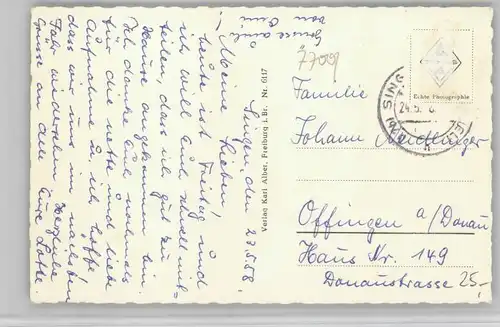 Singen, den 23.5.58.
Meine Lieben!
heute ist Freitag und
will Euch schnell mit=
teilen, dass ich gut zu
Hause angekommen bin.
Ich danke Euch nochmals
für die nette und liebe
Aufnahme u. ich hoffe
dass wir uns im nächsten
Jahr wiedersehen. Herzliche
Grüsse an alle Eure Lotte
Grüsse auch
von
Verlag Karl Alber, Freiburg i. Br. Nr. 6117
7700
Echte Photographie
SINGEN
24.5.
Familie
Johann Neidlinger
Offingen a/Donau
Haus Nr. 149
Donaustrasse 25,-